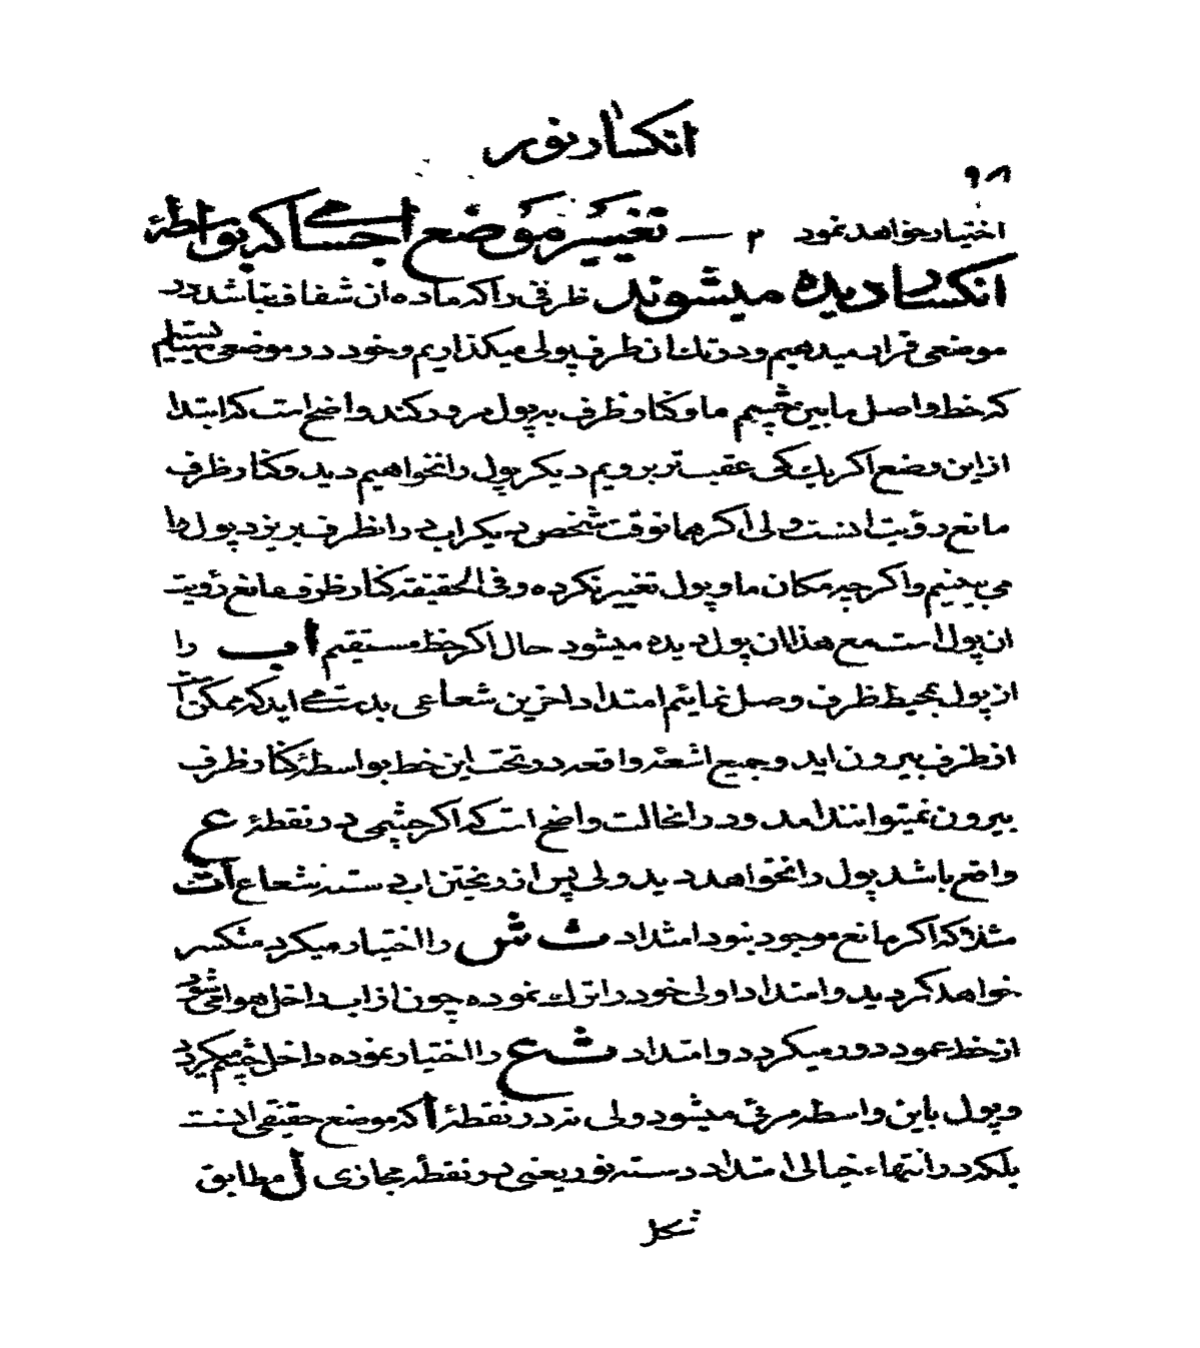 انکسار نور
۹۸
اختیار خواهد نمود ۲ — تغییر موضع اجسامیکه بواسطهٔ
انکسار دیده میشوند ظرفی را که ماده ان شفاف نباشد در
موضعی قرار میدهیم و در ته ان ظرف پولی میکذاریم و خود در موضعی میایستیم
که خط واصل مابین چشم ما و کنار ظرف به پول مرور کند واضح است که ابتدا
از این وضع اکر یک کمی عقب تر برویم دیکر پول را نخواهیم دید و کنار ظرف
مانع رؤیت انست ولی اکر همانوقت شخص دیکر اب در انظرف بریزد پول را
می بینیم و اکر چه مکان ما و پول تغییر نکرده و فی الحقیقه کنار ظرف مانع رؤیت
ان پول است مع هذا ان پول دیده میشود حال اکر خط مستقیم اب را
از پول بمحیط ظرف وصل نمائیم امتداد اخرین شعاعی بدست می اید که ممکن است
از ظرف بیرون اید و جمیع اشعهٔ واقعه در تحت این خط بواسطهٔ کنار ظرف
بیرون نمیتوانند امد و در انحالت واضح است که اکر چشمی در نقطهٔ ع
واقع باشد پول را نخواهد دید ولی پس از ریختن اب دسته شعاع اث
مثلا که اکر مانع موجود نبود امتداد ث ش را اختیار میکرد منکسر
خواهد کردید و امتداد اولی خود را ترک نموده چون از اب داخل هوا می شود
از خط عمود دور میکردد و امتداد ث ع را اختیار نموده داخل چشم میکردد
و پول باین واسطه مرئی میشود ولی نه در نقطهٔ ا که موضع حقیقی انست
بلکه در انتهاء خیالی امتداد دسته نور یعنی در نقطهٔ مجازی ل مطابق
شکل